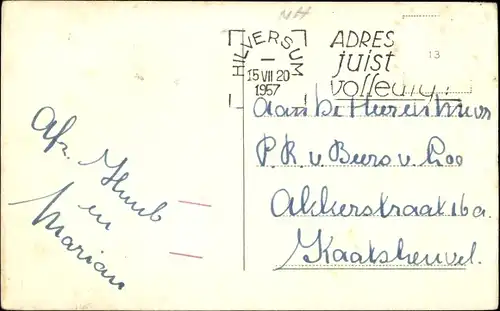 NH
HILVERSUM
15 VII 20
1957
ADRES
juist
volledig
13
Afz. Huub
en
Marian
Aan
P. K. v. Beers v. Loo
Akkerstraat 16a
Kaatsheuvel.